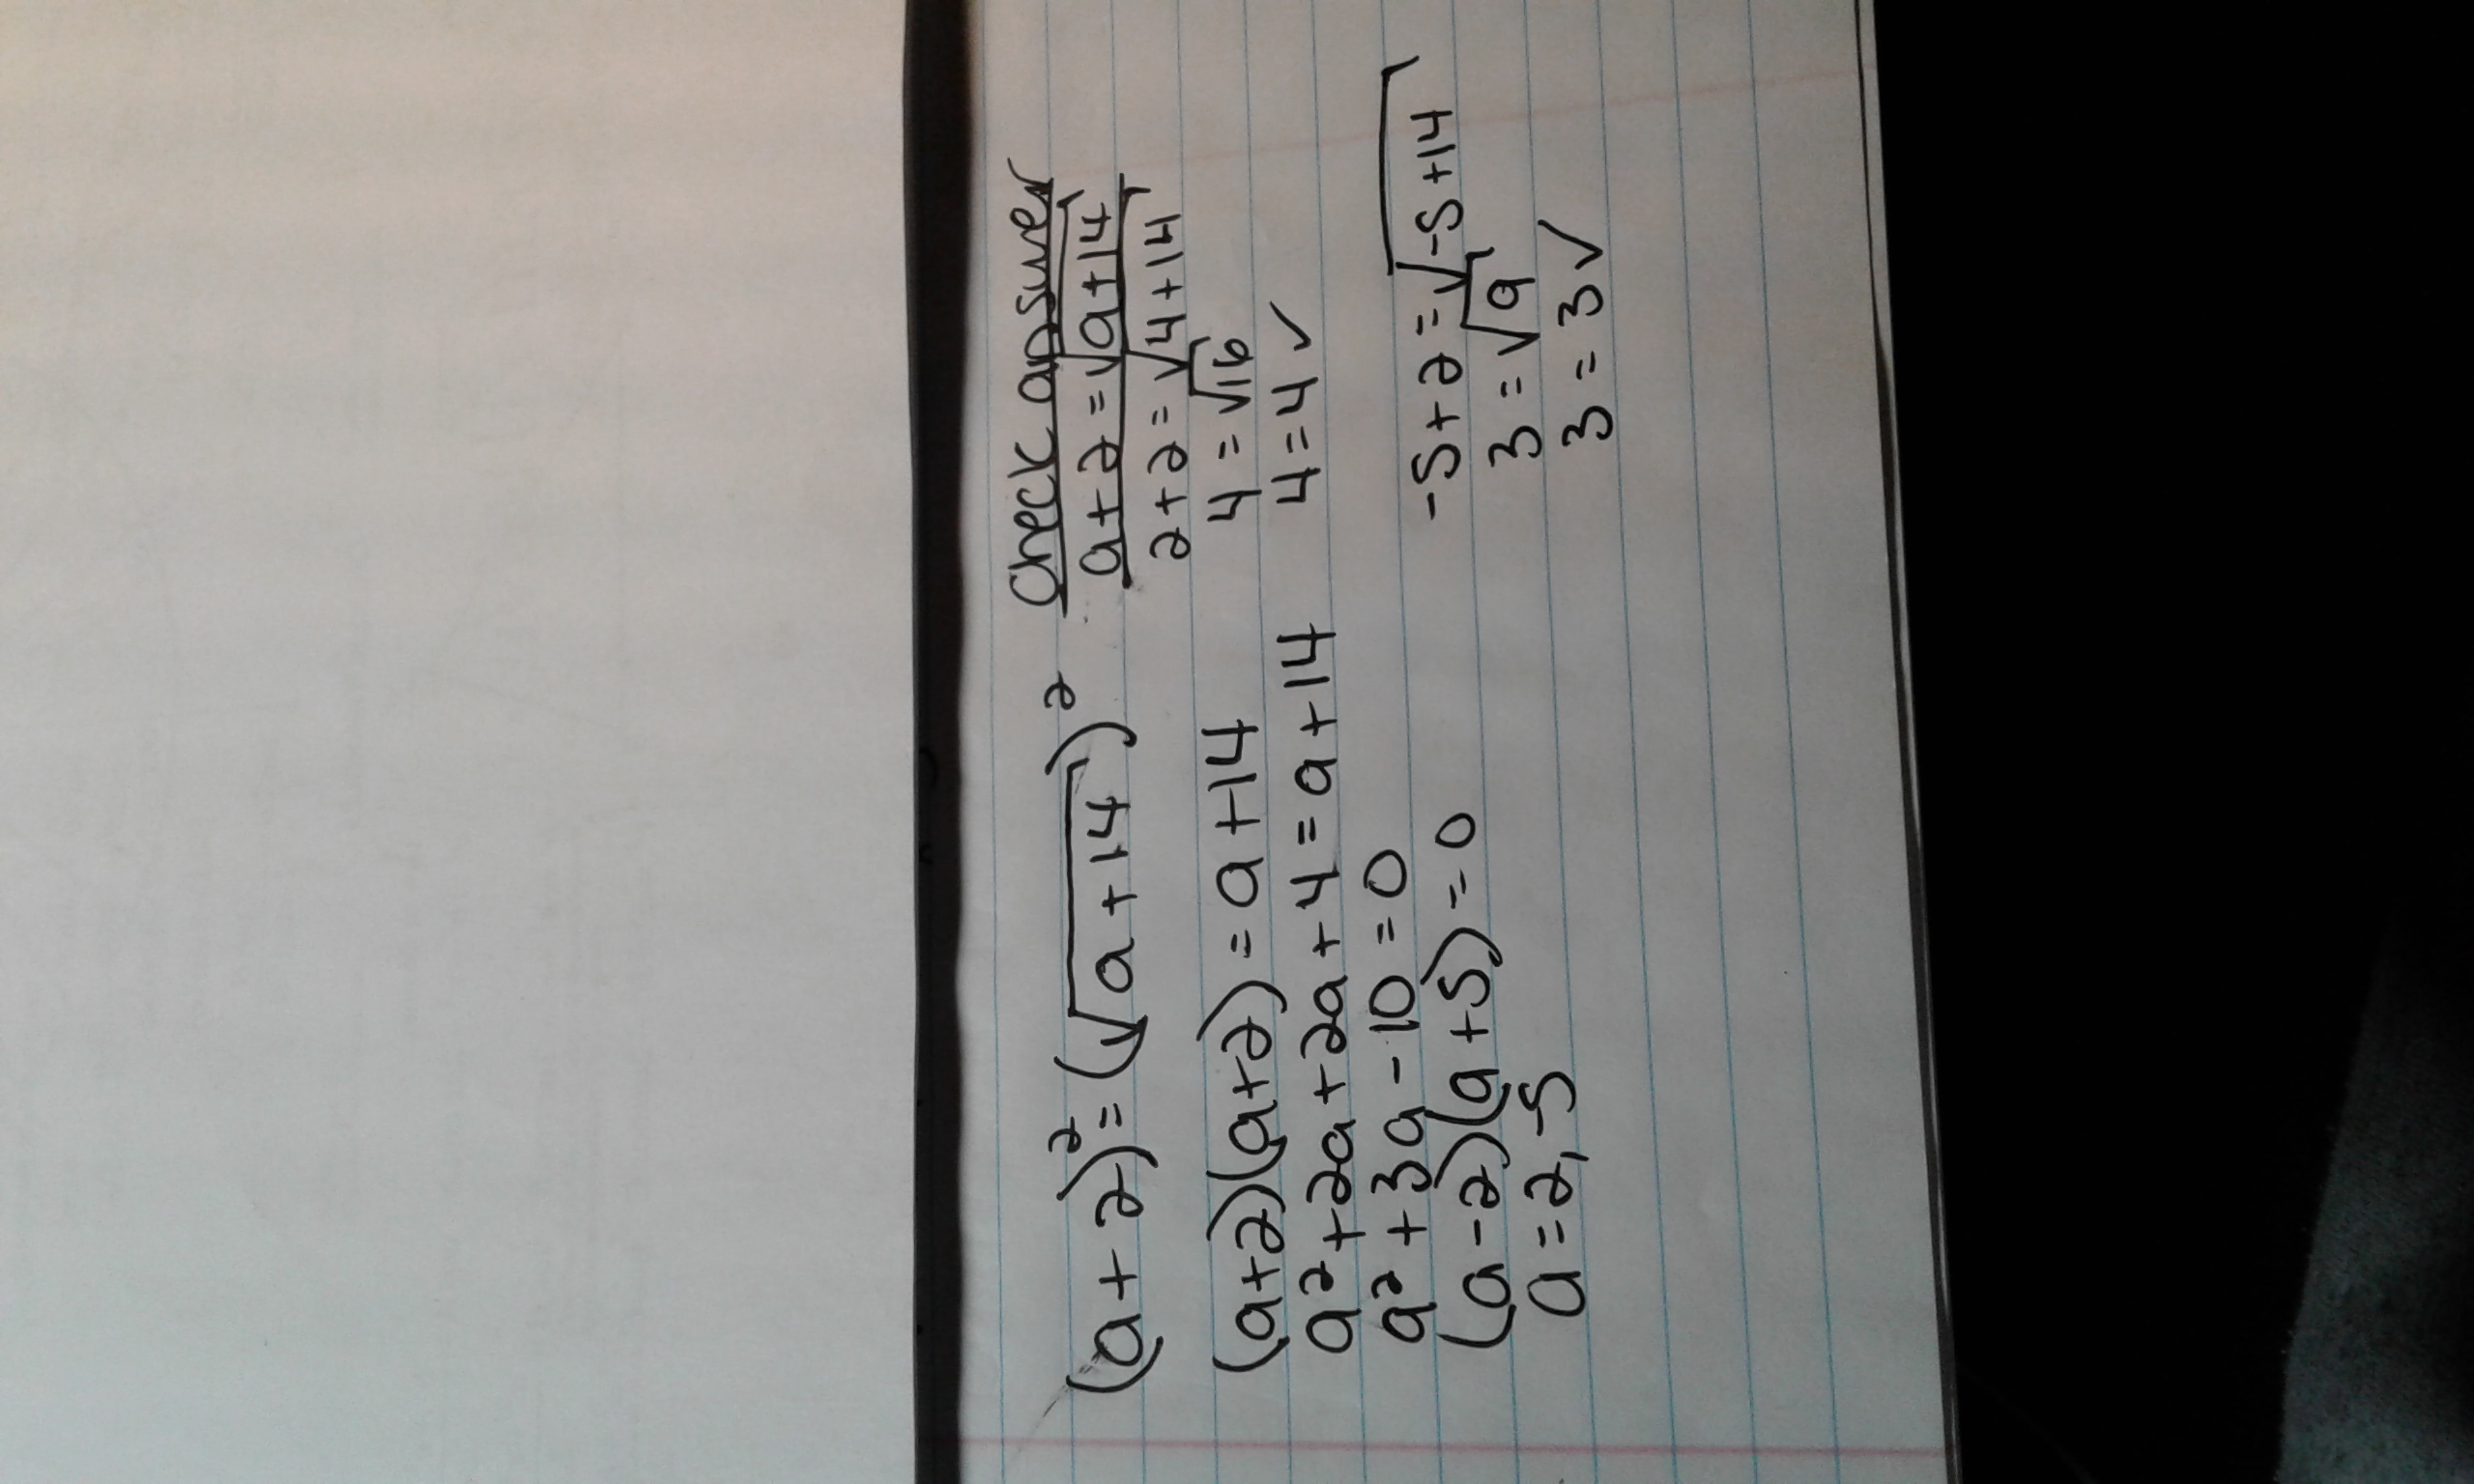 (a+2)²=(√a+14)²
(a+2)(a+2)=a+14
a²+2a+2a+4=a+14
a²+3a-10=0
(a-2)(a+5)=0
a=2,-5
check answer
a+2=√a+14
2+2=√4+14
4=√16
4=4✓
-5+2=√-5+14
3=√9
3=3✓